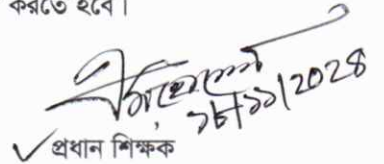 করতে হবে।
১৮/১১/2028
প্রধান শিক্ষক